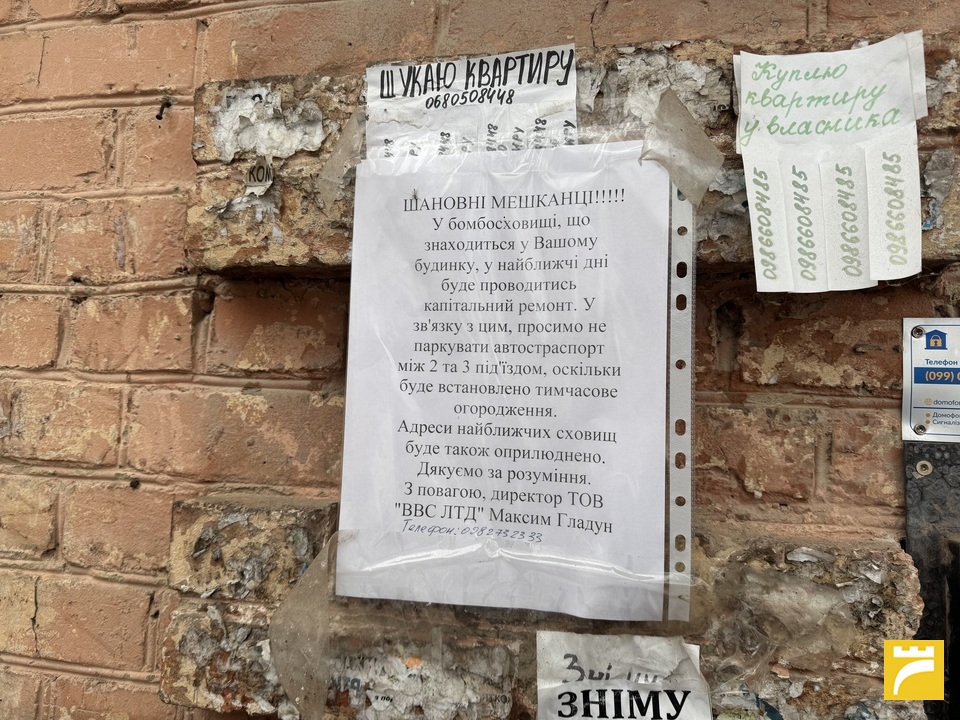 ШУКАЮ КВАРТИРУ
0680508448
Куплю
квартиру
у власника
0986608485
0986608485
0986608485
0986608485
КОМ
ШАНОВНІ МЕШКАНЦІ!!!!!
У бомбосховищі, що
знаходиться у Вашому
будинку, у найближчі дні
буде проводитись
капітальний ремонт. У
зв'язку з цим, просимо не
паркувати автостраспорт
між 2 та 3 під'їздом, оскільки
буде встановлено тимчасове
огородження.
Адреси найближчих сховищ
буде також оприлюднено.
Дякуємо за розуміння.
З повагою, директор ТОВ
"ВВС ЛТД" Максим Гладун
Телефон: 0982732333
Телефон
(099)
domofo
Домофо
Сигналіз
ЗНІМУ